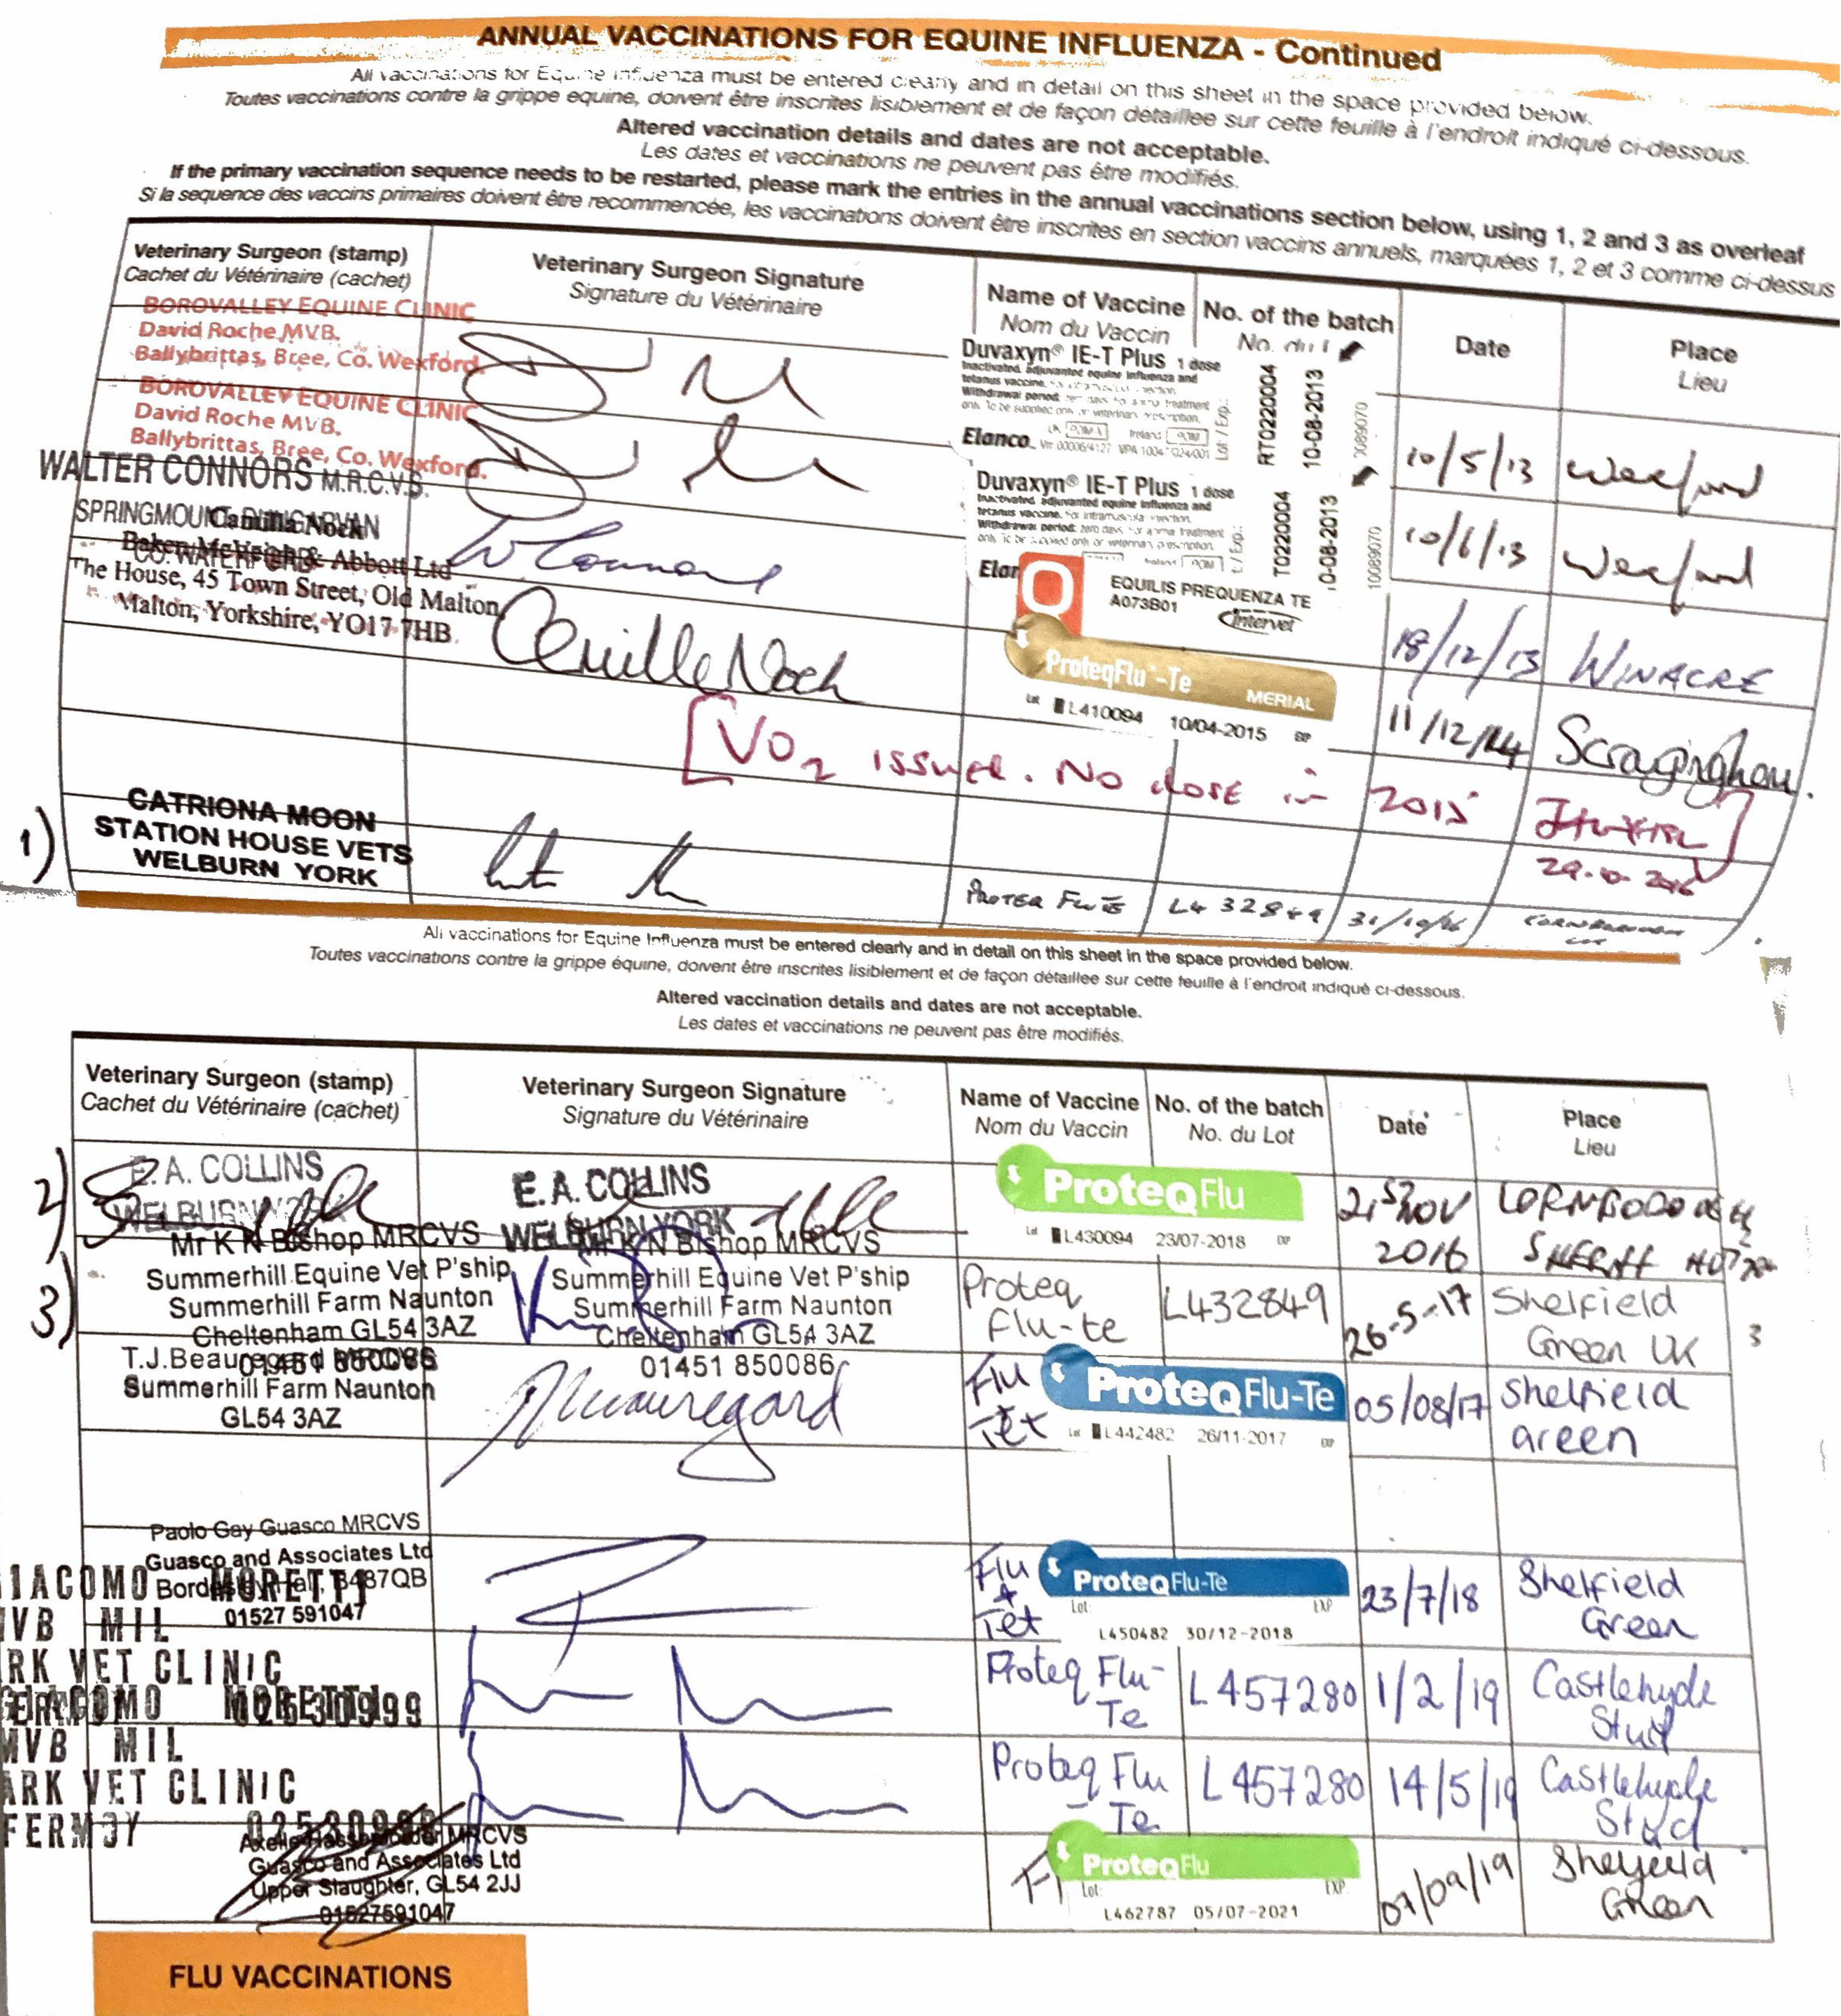 ANNUAL VACCINATIONS FOR EQUINE INFLUENZA - Continued
All vaccinations for Equine Influenza must be entered clearly and in detail on this sheet in the space provided below.
Toutes vaccinations contre la grippe equine, doivent être inscrites lisiblement et de façon détaillee sur cette feuille à l'endroit indiqué ci-dessous.
Altered vaccination details and dates are not acceptable.
Les dates et vaccinations ne peuvent pas être modifiés.
If the primary vaccination sequence needs to be restarted, please mark the entries in the annual vaccinations section below, using 1, 2 and 3 as overleaf
Si la sequence des vaccins primaires doivent être recommencée, les vaccinations doivent être inscrites en section vaccins annuels, marquées 1, 2 et 3 comme ci-dessus
Veterinary Surgeon (stamp)
Cachet du Vétérinaire (cachet)
Veterinary Surgeon Signature
Signature du Vétérinaire
Name of Vaccine
Nom du Vaccin
No. of the batch
No. du
Date
Place
Lieu
BOROVALLEY EQUINE CLINIC
David Roche MVB.
Ballybrittas, Bree, Co. Wexford.
Duvaxyn® IE-T Plus 1 dose
Inactivated, adjuvanted equine influenza and
tetanus vaccine.
Withdrawal period:
Elanco
RT0220004
10-08-2013
10/5/13
Wexford
BOROVALLEY EQUINE CLINIC
David Roche MVB.
Ballybrittas, Bree, Co. Wexford.
Duvaxyn® IE-T Plus 1 dose
Inactivated, adjuvanted equine influenza and
tetanus vaccine. For intramuscular injection.
Withdrawal period: zero days
Elan
T0220004
10-08-2013
10089070
10/6/13
Wexford
WALTER CONNORS M.R.C.V.S.
SPRINGMOUNT, DUNGARVAN
CO. WATERFORD
W Connors
EQUILIS PREQUENZA TE
A073B01
Intervet
18/12/13
WINACRE
Camilla Nock
Baker, McVeigh & Abbott Ltd
The House, 45 Town Street, Old Malton
Malton, Yorkshire, YO17 7HB
Camilla Nock
ProteqFlu-Te
MERIAL
L410094 10/04-2015
11/12/14
Scragingham.
[VO2 issued. No dose in 2015
29.10 2016
1)
CATRIONA MOON
STATION HOUSE VETS
WELBURN YORK
PROTEQ FLU TE
L432849
31/10/16
All vaccinations for Equine Influenza must be entered clearly and in detail on this sheet in the space provided below.
Toutes vaccinations contre la grippe équine, doivent être inscrites lisiblement et de façon détaillee sur cette feuille à l'endroit indiqué ci-dessous.
Altered vaccination details and dates are not acceptable.
Les dates et vaccinations ne peuvent pas être modifiés.
Veterinary Surgeon (stamp)
Cachet du Vétérinaire (cachet)
Veterinary Surgeon Signature
Signature du Vétérinaire
Name of Vaccine
Nom du Vaccin
No. of the batch
No. du Lot
Date
Place
Lieu
2)
E. A. COLLINS
WELBURN YORK
E. A. COLLINS
WELBURN YORK
ProteqFlu
L430094 23/07-2018
21st NOV
2016
SHERIFF HUTTON
3)
Mr K N Bishop MRCVS
Summerhill Equine Vet P'ship
Summerhill Farm Naunton
Cheltenham GL54 3AZ
01451 850086
Mr K N Bishop MRCVS
Summerhill Equine Vet P'ship
Summerhill Farm Naunton
Cheltenham GL54 3AZ
01451 850086
Proteq
Flu-te
L432849
26-5-17
Shelfield
Green UK
3
T.J.Beauregard MRCVS
Summerhill Farm Naunton
GL54 3AZ
Flu
Tet
ProteqFlu-Te
Lot L442482 26/11-2017 EXP
05/08/17
Shelfield
Green
Paolo Gay Guasco MRCVS
Guasco and Associates Ltd
Hall, B487QB
01527 591047
Flu
+
Tet
ProteqFlu-Te
Lot: EXP
L450482 30/12-2018
23/7/18
Shelfield
Green
IACOMO MORETTI
MVB MIL
RK VET CLINIC
Proteq Flu-
Te
L457280
1/2/19
Castlehyde
Stud
MORETTI
MVB MIL
ARK VET CLINIC
FERMOY
Proteq Flu
- Te
L457280
14/5/19
Castlehyde
Stud
MRCVS
Guasco and Associates Ltd
Upper Slaughter, GL54 2JJ
01527591047
ProteqFlu
Lot: EXP
L462787 05/07-2021
07/09/19
Shelfield
Green
FLU VACCINATIONS